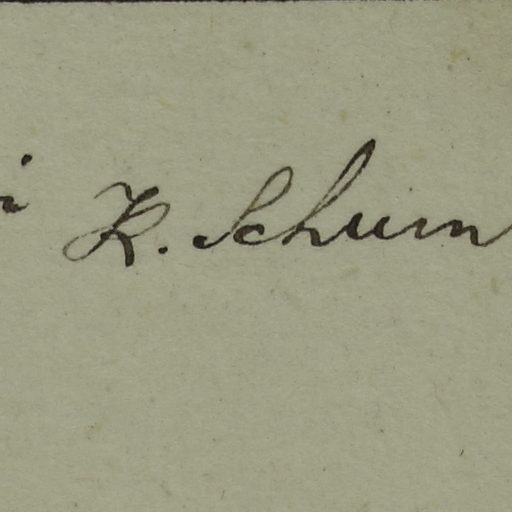 K. Schum